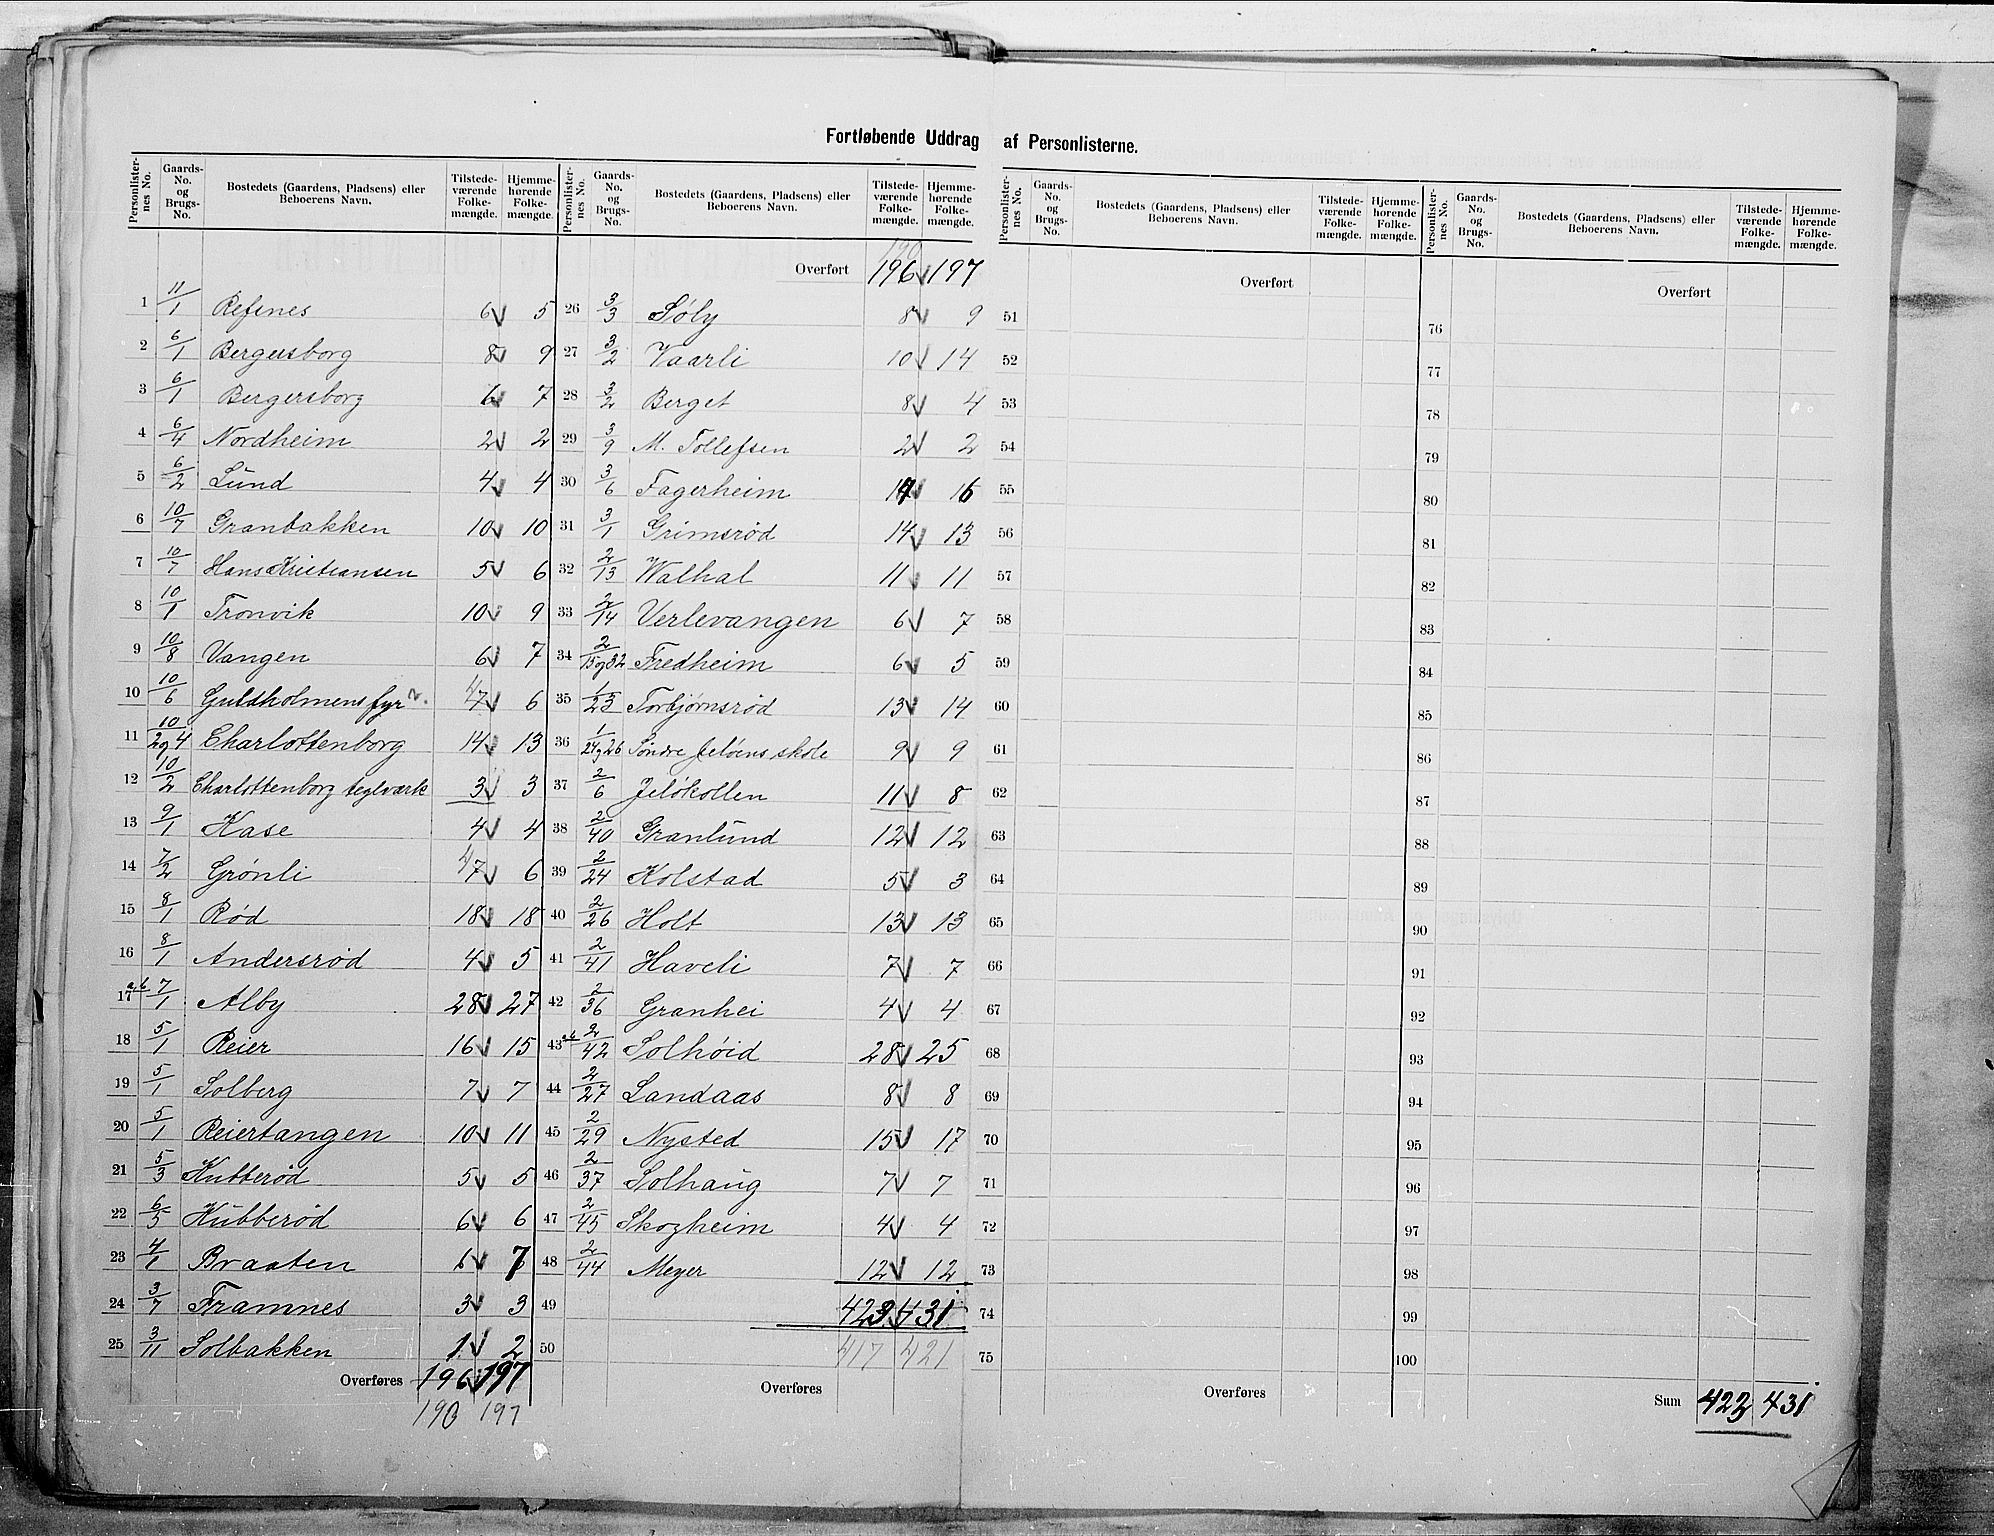 Fortløbende Uddrag af Personlisterne.
Personlister-nes No. | Gaards-No. og Brugs-No. | Bostedets (Gaardens, Pladsens) eller Beboerens Navn. | Tilstede-værende Folke-mængde. | Hjemme-hørende Folke-mængde.
1 11/1 Refsnes 6 5
2 6/1 Bergersborg 8 9
3 6/1 Bergersborg 6 7
4 6/4 Nordheim 2 2
5 6/2 Lund 4 4
6 10/7 Granbakken 10 10
7 10/7 Hans Kristiansen 5 6
8 10/1 Tronvik 10 9
9 10/8 Vangen 6 7
10 10/6 Guldholmens fyr 7 6
11 10/2 og 4 Charlottenborg 14 13
12 10/2 Charlottenborg teglværk 3 3
13 9/1 Kase 4 4
14 7/2 Grønli 7 6
15 8/1 Rød 18 18
16 8/1 Andersrød 4 5
17 a,b 7/1 Alby 28 27
18 5/1 Reier 16 15
19 5/1 Solberg 7 7
20 5/1 Reiertangen 10 11
21 5/3 Kubberød 5 5
22 6/5 Kubberød 6 6
23 4/1 Braaten 6 7
24 3/7 Framnes 3 3
25 3/11 Solbakken 1 2
Overføres 196 197
190 197
Personlister-nes No. | Gaards-No. og Brugs-No. | Bostedets (Gaardens, Pladsens) eller Beboerens Navn. | Tilstede-værende Folke-mængde. | Hjemme-hørende Folke-mængde.
190
Overført 196 197
26 3/3 Søly 8 9
27 3/2 Vaarli 10 14
28 3/2 Berget 8 4
29 3/9 M. Tollefsen 2 2
30 3/6 Fagerheim 16
31 3/1 Grimsrød 14 13
32 2/13 Walhal 11 11
33 2/14 Verlevangen 6 7
34 2/15 og 32 Fredheim 6 5
35 1/23 Torbjørnsrød 13 14
36 1/24 og 26 Søndre Jeløens skole 9 9
37 2/6 Jeløkollen 11 8
38 2/40 Granlund 12 12
39 2/24 Kolstad 5 3
40 2/26 Holt 13 13
41 2/41 Haveli 7 7
42 2/36 Granhei 4 4
43 a,b 2/42 Solhøid 28 25
44 2/27 Landaas 8 8
45 2/29 Nysted 15 17
46 2/37 Solhaug 7 7
47 2/45 Skogheim 4 4
48 2/44 Meyer 12 12
49 423 431
50 417 421
Overføres
Personlister-nes No. | Gaards-No. og Brugs-No. | Bostedets (Gaardens, Pladsens) eller Beboerens Navn. | Tilstede-værende Folke-mængde. | Hjemme-hørende Folke-mængde.
Overført
51
52
53
54
55
56
57
58
59
60
61
62
63
64
65
66
67
68
69
70
71
72
73
74
75
Overføres
Personlister-nes No. | Gaards-No. og Brugs-No. | Bostedets (Gaardens, Pladsens) eller Beboerens Navn. | Tilstede-værende Folke-mængde. | Hjemme-hørende Folke-mængde.
Overført
76
77
78
79
80
81
82
83
84
85
86
87
88
89
90
91
92
93
94
95
96
97
98
99
100
Sum 423 431